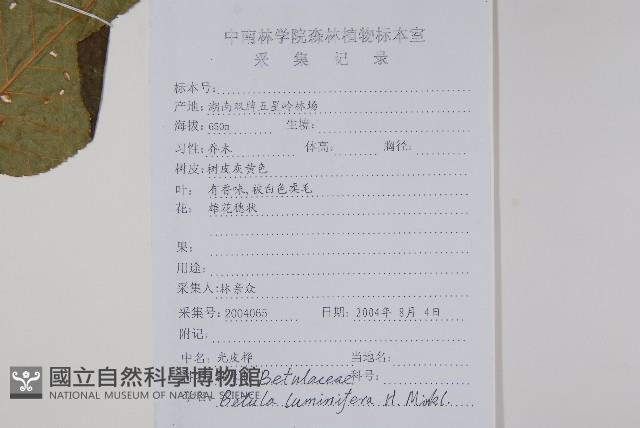 中南林学院森林植物标本室
采 集 记 录
标本号:
产地: 湖南双牌五星岭林场
海拔: 650m 生境:
习性: 乔木 体高: 胸径:
树皮: 树皮灰黄色
叶: 有香味,被白色柔毛
花: 雄花穗状
果:
用途:
采集人: 林亲众
采集号: 2004065 日期: 2004年 8月 4日
附记:
中名: 光皮桦 当地名:
Betulaceae 科号:
Betula luminifera H. Winkl.
國立自然科學博物館
NATIONAL MUSEUM OF NATURAL SCIENCE